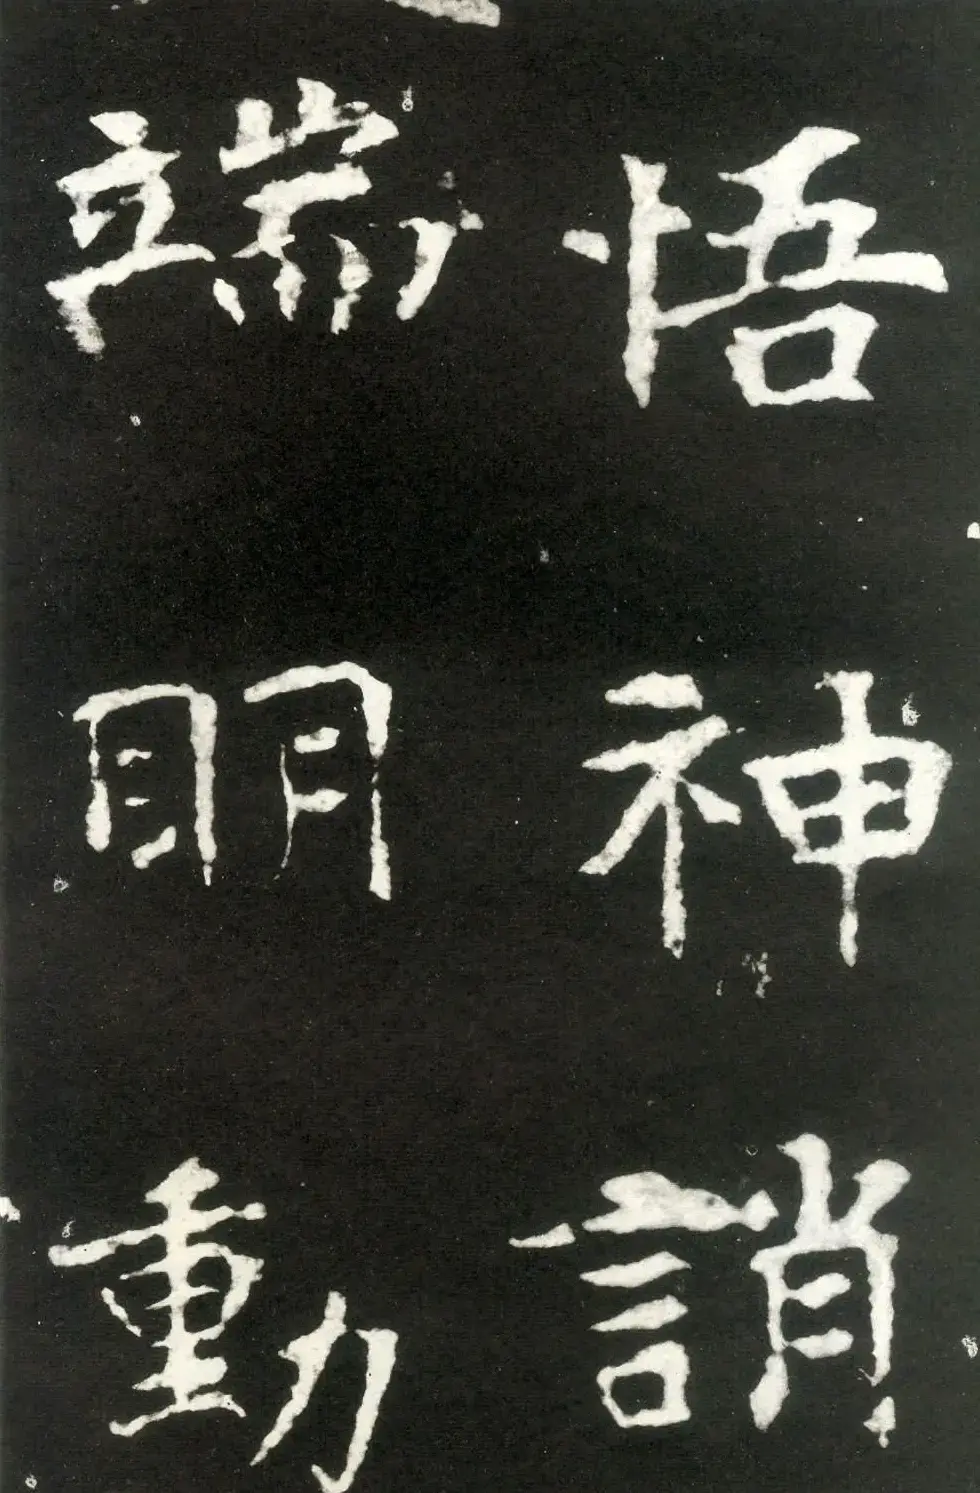 悟神誚
端明動